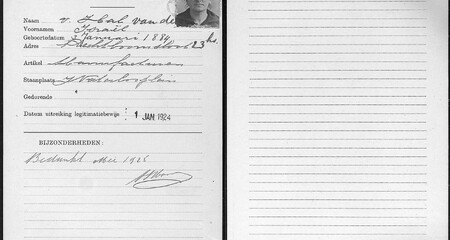 Naam v. d. Hal van de
Voornamen Israël
Geboortedatum 3 Januari 1884
Adres 23 hs.
Artikel Manufacturen
Staanplaats Waterlooplein
Gedurende
Datum uitreiking legitimatiebewijs: 1 JAN. 1924
BIJZONDERHEDEN:
Bedankt Mei 1925